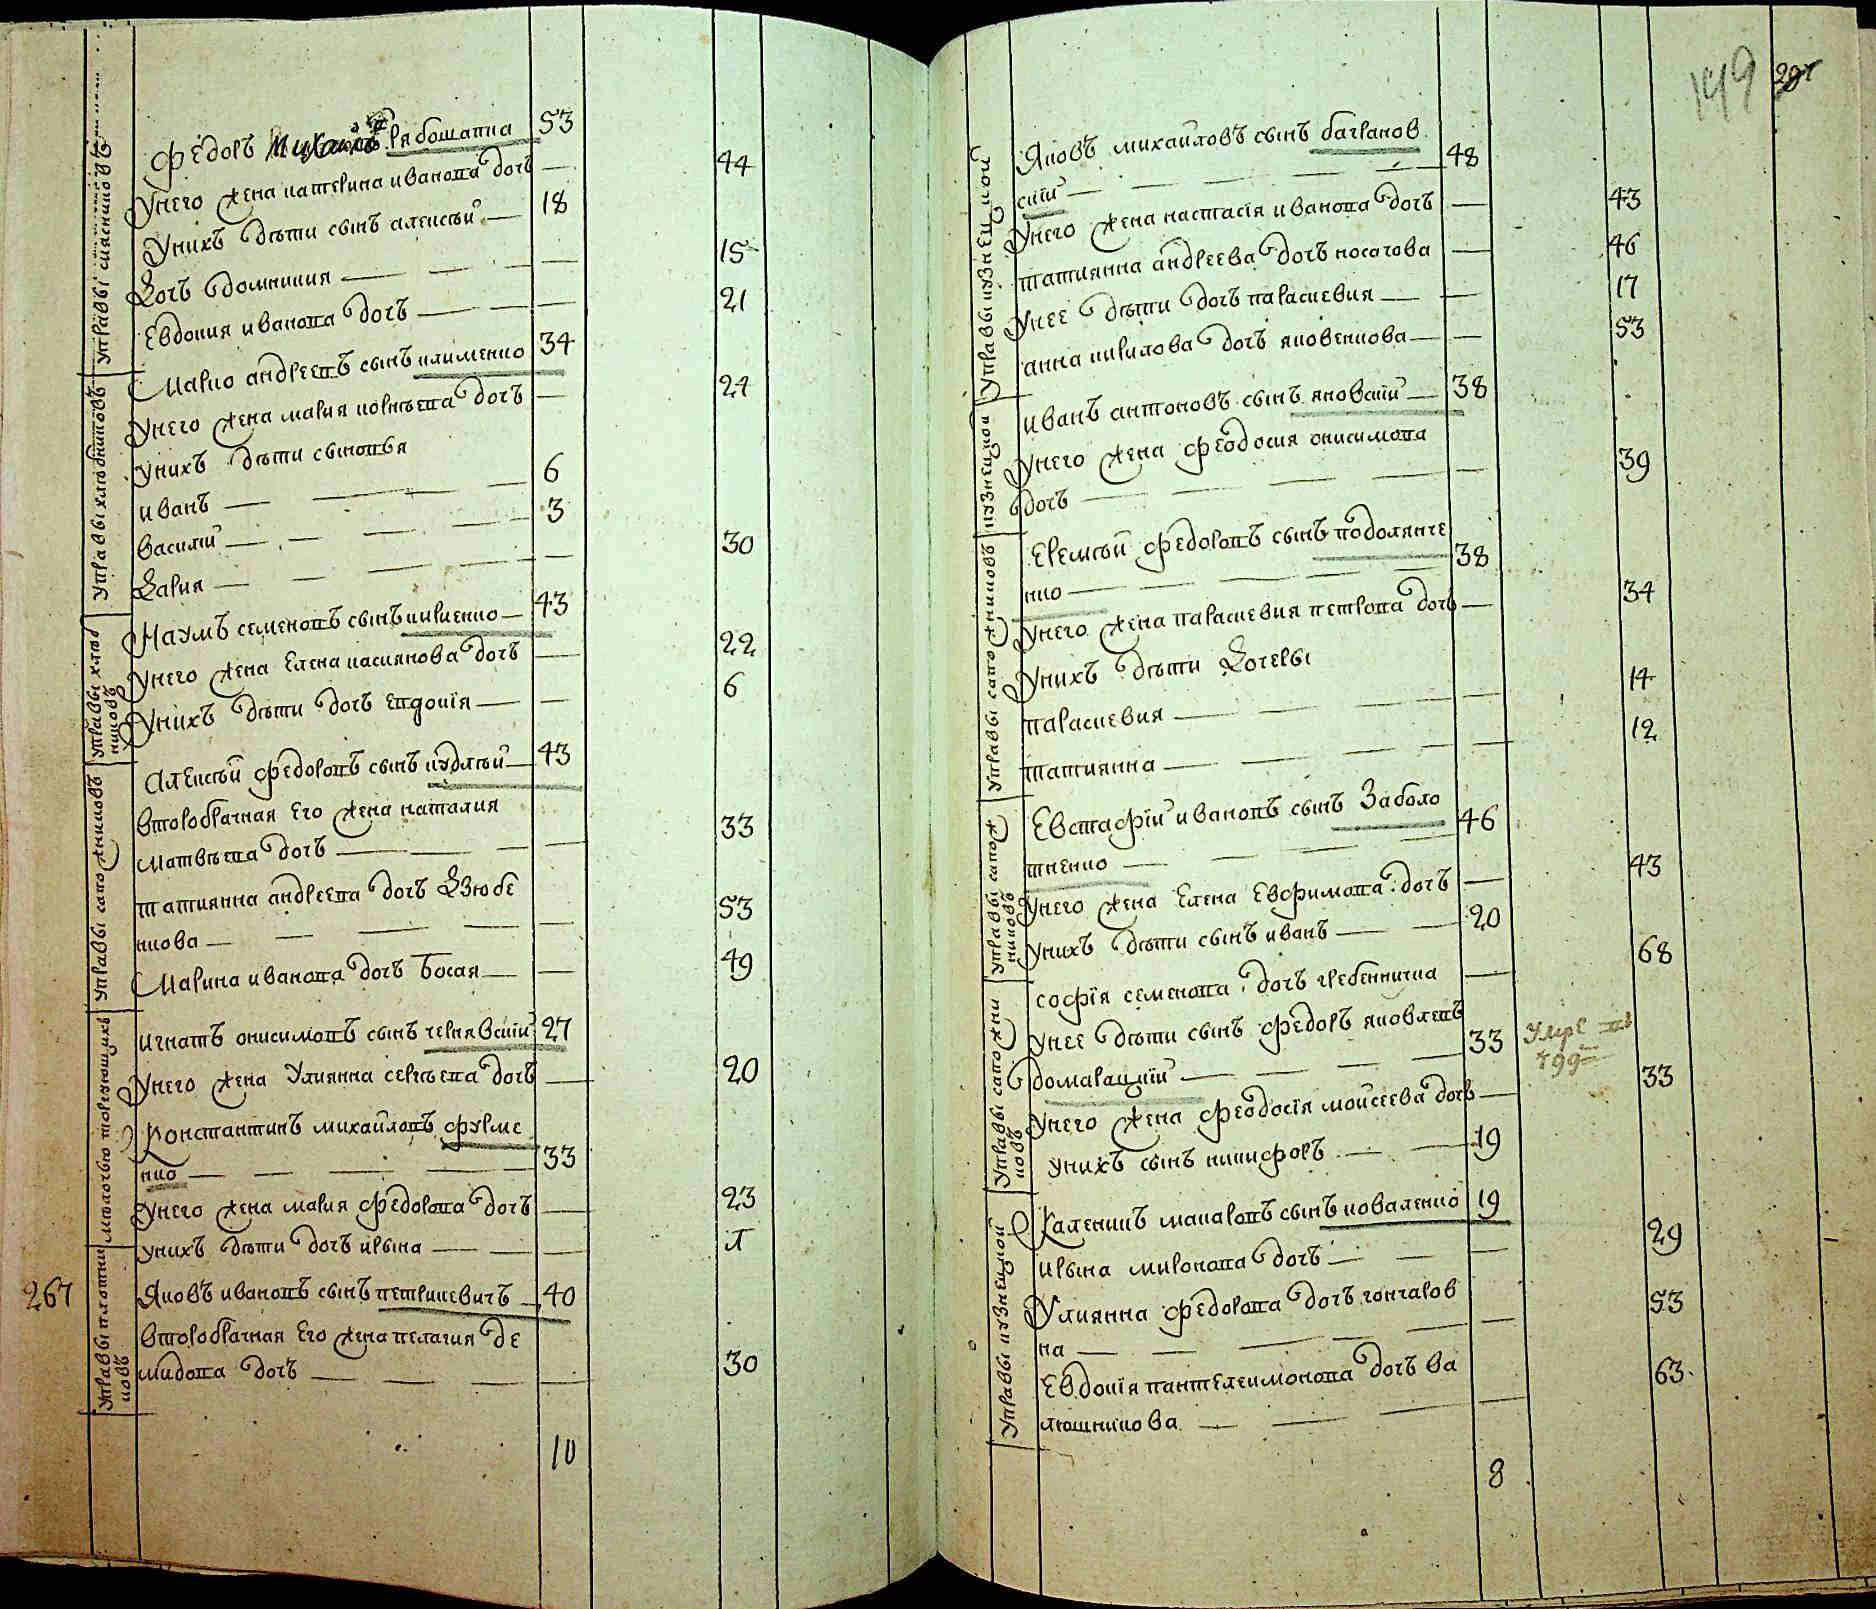 управы снясниковъ
Федоръ рябошапка 53
Унего жена катерина иванова дочъ — 44
Унихъ дѣти сынъ алексѣй — 18
Дочъ домникия — — — 15
Евдокия иванова дочъ — — — 21
управы хлѣбниковъ
Марко андреевъ сынъ клименко 34
Унего жена мария корнѣева дочъ — 24
Унихъ дѣти сыновья
иванъ — — — 6
василий — — — 3
Дария — — — — 30
управы хлѣб
никовъ
Наумъ семеновъ сынъ кириенко — 43
Унего жена Елена касиянова дочъ — 22
Унихъ дѣти дочъ Евдокія — — 6
управы сапожниковъ
Алексѣй федоровъ сынъ кудлѣй — 43
второбрачная Его жена наталия
матвѣева дочъ — — — — 33
татиянна андреева дочъ Дзюбе
нкова — — — — — 53
Марина иванова дочъ Босая — — 49
мѣлочью торгующихъ
игнатъ онисимовъ сынъ чернявский 27
Унего жена Улиянна сергѣева дочъ — 20
Константинъ михайловъ фурме
нко — — — — 33
Унего жена мария федорова дочъ — 23
унихъ дѣти дочъ ирына — — — л
267
управы плотни
ковъ
Яковъ ивановъ сынъ петрикевичъ — 40
второбрачная Его жена пелагия де
мидова дочъ — — — — 30
10
149
управы кузнецкой
Яковъ михайловъ сынъ бачланов
ский — — — — — 48
Унего жена настасія иванова дочъ — 43
татиянна андреева дочъ носачова — 46
Унее дѣти дочъ параскевия — — 17
анна кирилова дочъ яковенкова — — 53
кузнецкой
иванъ антоновъ сынъ яновский — 38
Унего жена феодосия онисимова
дочъ — — — — — 39
управы сапожниковъ
Еремѣй федоровъ сынъ подолянче
нко — — — — 38
Унего жена параскевия петрова дочъ — 34
Унихъ дѣти Дочеры
параскевия — — — — 14
татиянна — — — — 12
управы сапож
никовъ
Евстафій ивановъ сынъ Заболо
тненко — — — — 46
Унего жена Елена Евфимова дочъ — 43
Унихъ дѣти сынъ иванъ — — 20
управы сапожни
ковъ
софія семенова дочъ гребенничка — 68
Унее дѣти сынъ федоръ яковлевъ
домарацкий — — — — 33 Умре
799
Унего жена феодосія моисеева дочъ — 33
унихъ сынъ никифоръ — — 19
управы кузнецкой
Каленикъ макаровъ сынъ коваленко 19
ирына миронова дочъ — — — 29
Улиянна федорова дочъ гончаров
на — — — — — 53
Евдокія пантелеимонова дочъ ва
люшникова — — — — 63
8